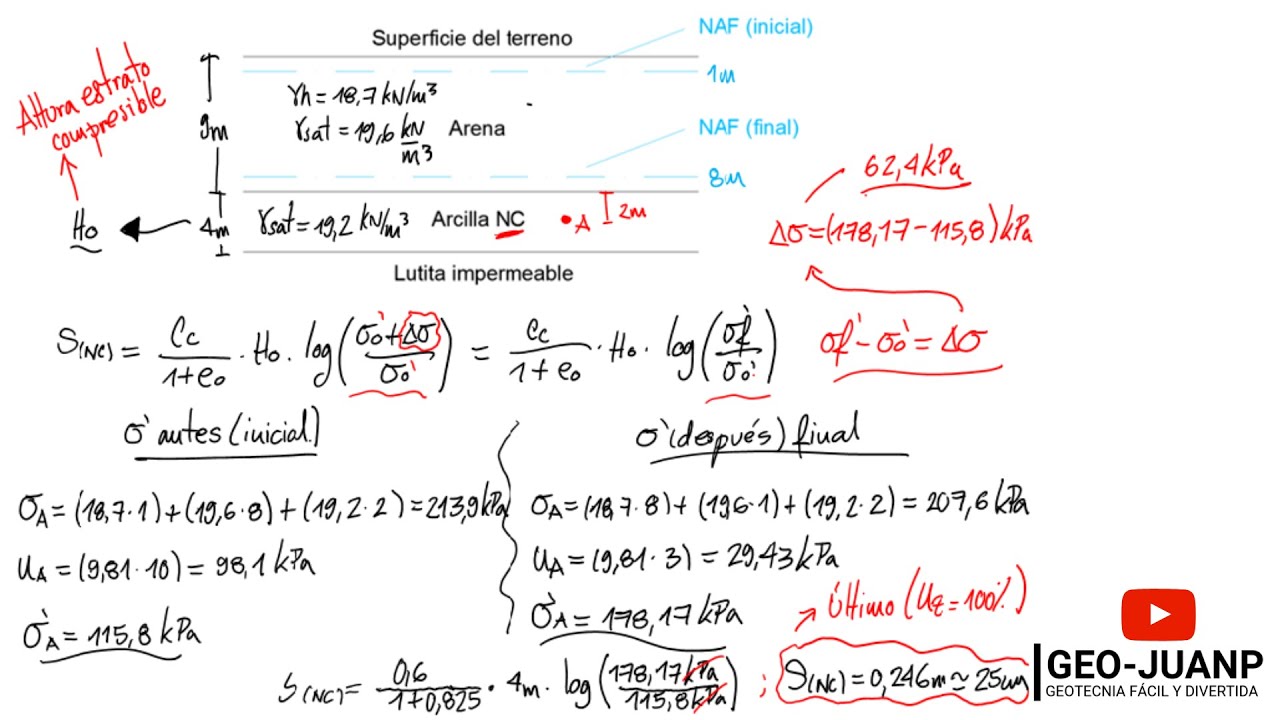 NAF (inicial)
Superficie del terreno
1m
Altura estrato
compresible
γh = 18,7 kN/m³
9m
γsat = 19,6 kN/m³ Arena
NAF (final)
8m
62,4 kPa
Ho
4m
γsat = 19,2 kN/m³ Arcilla NC
A
2m
Δσ = (178,17 - 115,8) kPa
Lutita impermeable
S(NC) = Cc/(1+eo) · Ho · log((σo' + Δσ)/σo') = Cc/(1+eo) · Ho · log(σf'/σo')
σf' - σo' = Δσ
σ' antes (inicial)
σA = (18,7·1) + (19,6·8) + (19,2·2) = 213,9 kPa
uA = (9,81·10) = 98,1 kPa
σ'A = 115,8 kPa
σ' (después) final
σA = (18,7·8) + (19,6·1) + (19,2·2) = 207,6 kPa
uA = (9,81·3) = 29,43 kPa
σ'A = 178,17 kPa
Último (Uz = 100%)
S(NC) = 0,6/(1+0,825) · 4m · log(178,17 kPa/115,8 kPa) ; S(NC) = 0,246 m ≃ 25 cm
GEO-JUANP
GEOTECNIA FÁCIL Y DIVERTIDA